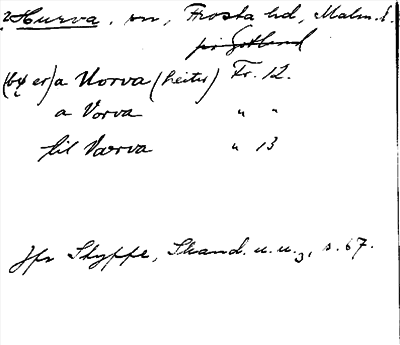 ?Hurva, sn, Frosta hd, Malm. l.
på Gotland
(bý er) a Uorva (heitir) Fr. 12.
a Vorva " "
til Værva " 13
Jfr Styffe, Skand. u. u. 3, s. 67.